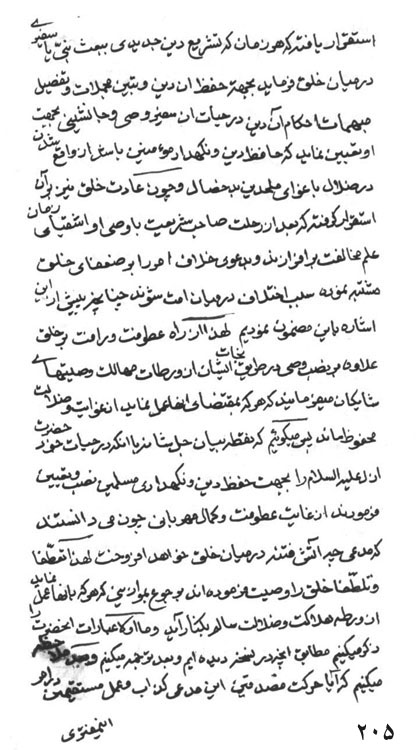 استقرار یافته که هر زمان که تشریع دین جدیدی ببعث نبی یا سفیری
در میان خلق فرماید بجهتِ حفظ ان دین و تبیین مجملات و تفصیل
مبهمات احکام آن دین در حیات ان سفیر وصی و جانشینی بجهت
او تعیین نماید که حافظ دین و نگهدار مومنین باشد از واقع شدن
در ضلال باغوای ملحدین بد خصال و چون عادت خلق نیز بر آن
استقرار گرفته که بعد از رحلت صاحب شریعت با وصی او اشقیای زمان
علم مخالفت بر افرازند و بدعوی خلاف امر را بر ضعفای خلق
مشتبه نموده سبب اختلاف در میان امت شوند چنانچه پیش از این
اشاره باین مضمون نمودیم لهذا از راه عطوفت و رافت بر خلق
علاوه بر نصب وصی در طریق نجات ایشان از ورطات مهالک وصیتهای
شایکان میفرمایند که هر که بمقتضای انها عمل نماید از غوایت و ضلالت
محفوظ ماند پس میگوئیم که نقطه بیان جل شانه با انکه در حیات خود حضرت
ازل علیه السلام را بجهت حفظ دین و نگهداری مسلمین نصب و تعیین
فرمودند از غایت عطوفت و کمال مهربانی چون می دانستند
که مدعی چه آتش فتنه در میان خلق خواهد افروخت لهذا تعطفا
و تلطفا خلق را وصیت فرموده اند برجوع بموازینی که هر که بانها عمل نماید
از ورطه هلاکت و ضلالت سالم بکنار آید و ما اولا عبارات انحضرت را
ذکر میکنیم مطابق انچه در نسخه دیده ایم و بعد ترجمه میکنیم و بعد ملاحظه
میکنیم که آیا حرکت مصدقین این مدعی کذاب و عمل مستفیضین
۲۰۵